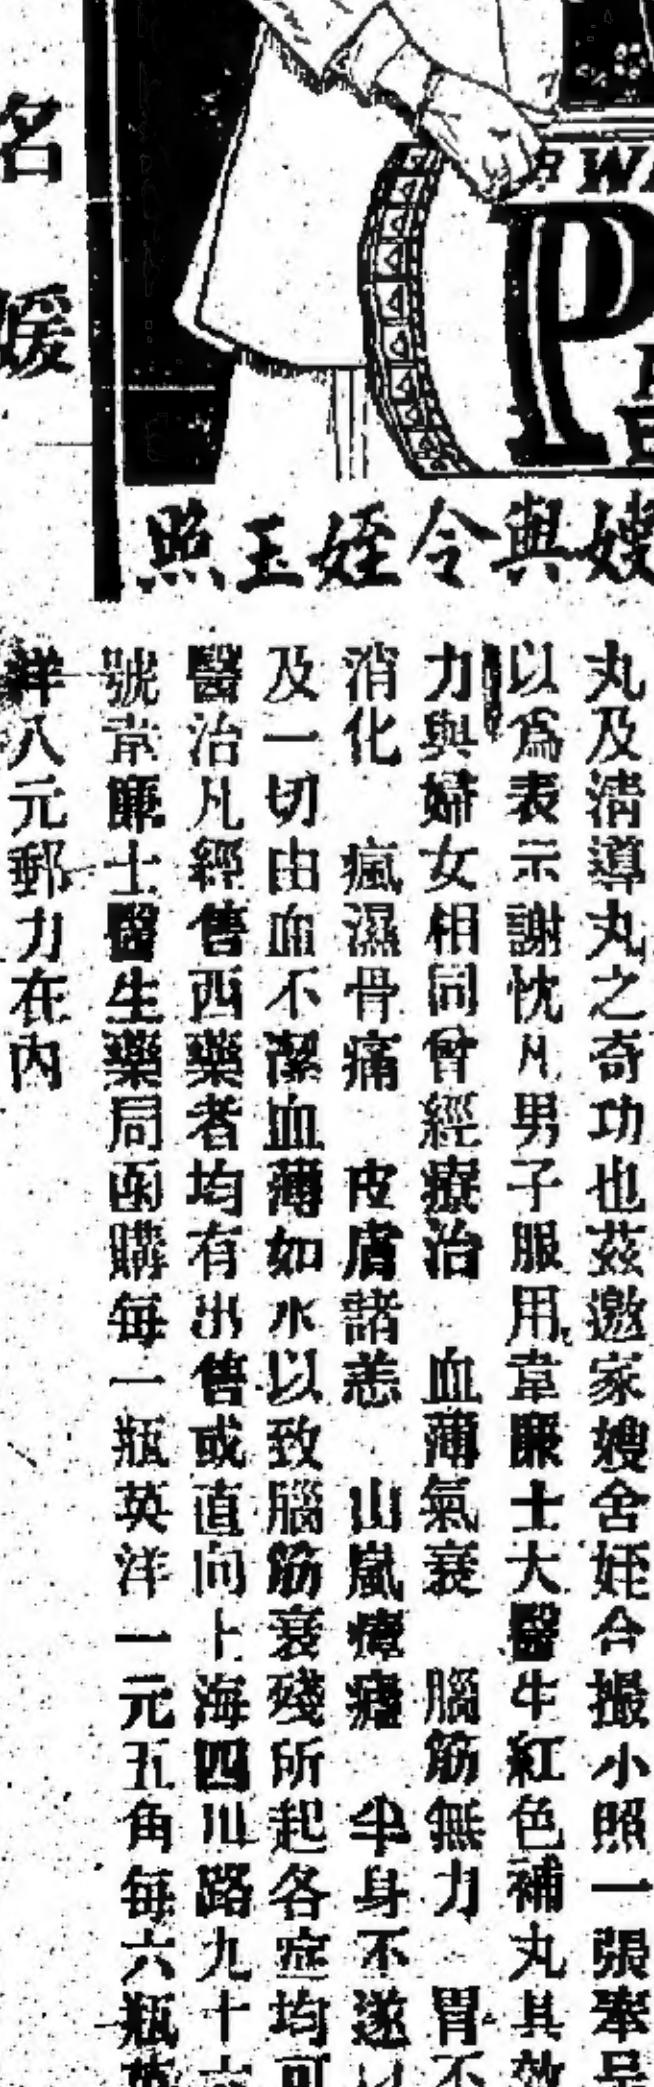 名媛
WA
P
嫂與令姪玉照
丸及清導丸之奇功也茲邀家嫂舍姪合撮小照一張奉呈
以爲表示謝忱凡男子服用韋廉士大醫生紅色補丸其效
力與婦女相同曾經療治 血薄氣衰 腦筋無力 胃不
消化 瘋濕骨痛 皮膚諸恙 山嵐瘴瘧 半身不遂以
及一切由血不潔血薄如水以致腦筋衰殘所起各症均可
醫治凡經售西藥者均有出售或直向上海四川路九十六
號韋廉士醫生藥局函購每一瓶英洋一元五角每六瓶英
洋八元郵力在內